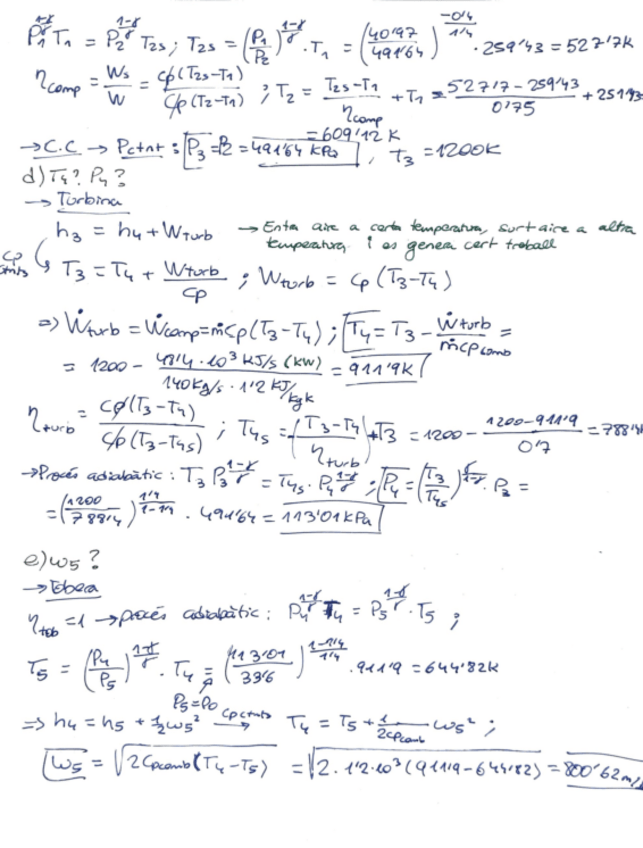 P₁^((1-γ)/γ) T₁ = P₂^((1-γ)/γ) T₂s ; T₂s = (P₁/P₂)^((1-γ)/γ) · T₁ = (40'97/491'64)^(-0'4/1'4) · 259'43 = 527'7K
η_comp = Ws/W = cp(T₂s-T₁)/cp(T₂-T₁) ; T₂ = (T₂s-T₁)/η_comp + T₁ = (527'7-259'43)/0'75 + 259'43
= 609'12 K
→ C.C → Pctnt : P₃ = P₂ = 491'64 kPa , T₃ = 1200K
d) T₄? P₄?
→ Turbina
h₃ = h₄ + W_Turb → Entra aire a certa temperatura, surt aire a altra
temperatura i es genera cert treball
cp
T₃ = T₄ + W_turb/cp ; W_turb = cp (T₃-T₄)
⇒ Ẇ_turb = Ẇ_comp = ṁcp (T₃-T₄) ; T₄ = T₃ - Ẇ_turb/ṁcp_comb =
= 1200 - 10³ kJ/s (kW)/140kg/s · 1'2 kJ/kgk = 911'9K
η_turb = cp(T₃-T₄)/cp(T₃-T₄s) ; T₄s = -(T₃-T₄)/η_turb + T₃ = 1200 - (1200-911'9)/0'7 = 788'4K
→ Procés adiabàtic : T₃ P₃^((1-γ)/γ) = T₄s · P₄^((1-γ)/γ) ; P₄ = (T₃/T₄s)^(γ/(1-γ)) · P₃ =
= (1200/788'4)^(1'4/(1-1'4)) · 491'64 = 113'01 kPa
e) w₅ ?
→ Tobera
η_tob = 1 → procés adiabàtic : P₄^((1-γ)/γ) T₄ = P₅^((1-γ)/γ) · T₅ ;
T₅ = (P₄/P₅)^((1-γ)/γ) · T₄ = (113'01/33'6)^((1-1'4)/1'4) · 911'9 = 644'82K
P₅ = P₀
⇒ h₄ = h₅ + ½w₅² → cp ctnts T₄ = T₅ + 1/(2cp_comb) w₅² ;
w₅ = √(2cp_comb (T₄-T₅)) = √(2 · 1'2 · 10³ (911'9-644'82)) = 800'62 m/s